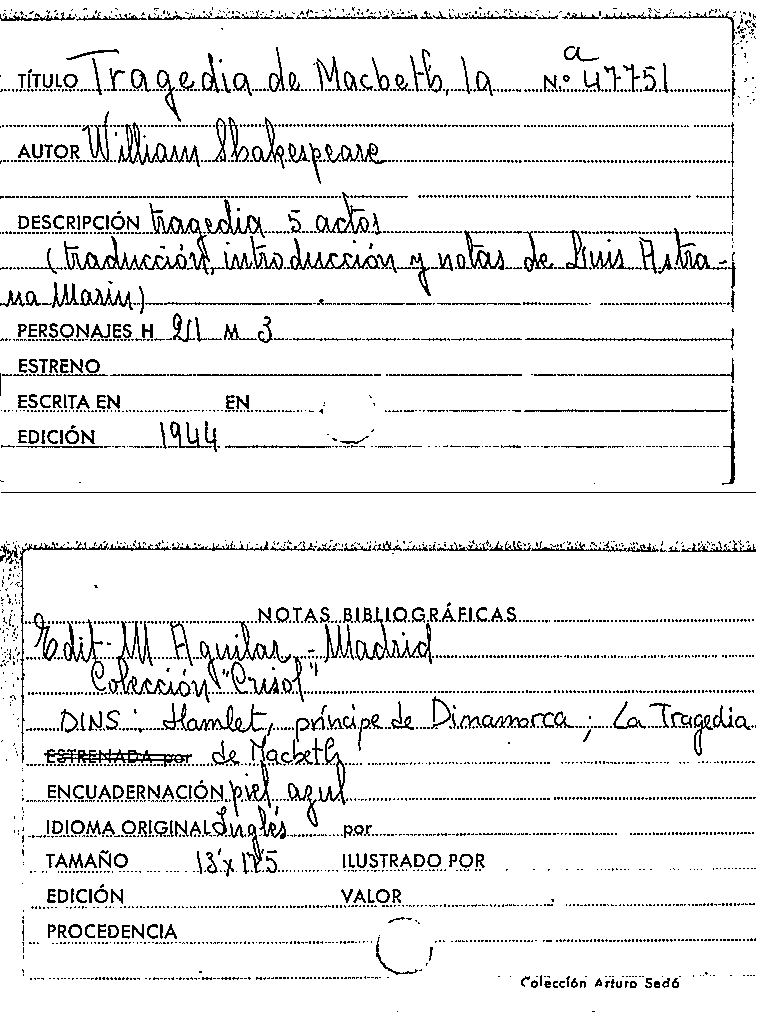 TÍTULO Tragedia de Macbeth, la Nº 47751
a
AUTOR William Shakespeare
DESCRIPCIÓN tragedia 5 actos
(traducción, introducción y notas de Luis Astra-
na Marín)
PERSONAJES H 21 M 3
ESTRENO
ESCRITA EN EN
EDICIÓN 1944
NOTAS BIBLIOGRÁFICAS
Edit. M Aguilar - Madrid
Colección "Crisol"
DINS: Hamlet, príncipe de Dinamarca; La Tragedia
ESTRENADA por de Macbeth
ENCUADERNACIÓN piel azul
IDIOMA ORIGINAL Inglés por
TAMAÑO ILUSTRADO POR
EDICIÓN VALOR
PROCEDENCIA
Colección Arturo Sedó